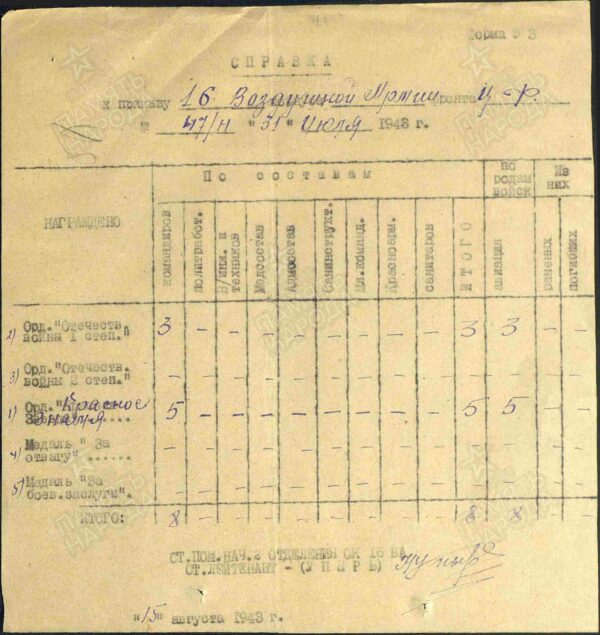 Форма № 3
СПРАВКА
к приказу 16 Воздушной Армии фронта Ц-Ф.
№ 47/н "31" Июля 1943 г.
НАГРАЖДЕНО
По составам
по родам войск
Из них
командиров
политработ.
в/инж. и техников
Медсостав
Админсостав
Санинструкт.
Мл.команд.
Красноарм.
санитаров
ИТОГО
авиация
раненых
погибших
2) Орд."Отечеств. войны 1 степ." 3 - - - - - - - - 3 3 - -
3) Орд."Отечеств. войны 2 степ." - - - - - - - - - - - - -
1) Орд. "Красное Знамя 5 - - - - - - - - 5 5 - -
4) Медаль " За отвагу" ...... - - - - - - - - - - - - -
5) Медаль "За боев.заслуги". - - - - - - - - - - - - -
ИТОГО: 8 - - - - - - - - 8 8 - -
СТ.ПОМ.НАЧ.2 ОТДЕЛЕНИЯ ОК 16 ВА
СТ.ЛЕЙТЕНАНТ - (УПЫРЬ)
"15" августа 1943 г.
ПАМЯТЬ НАРОДА